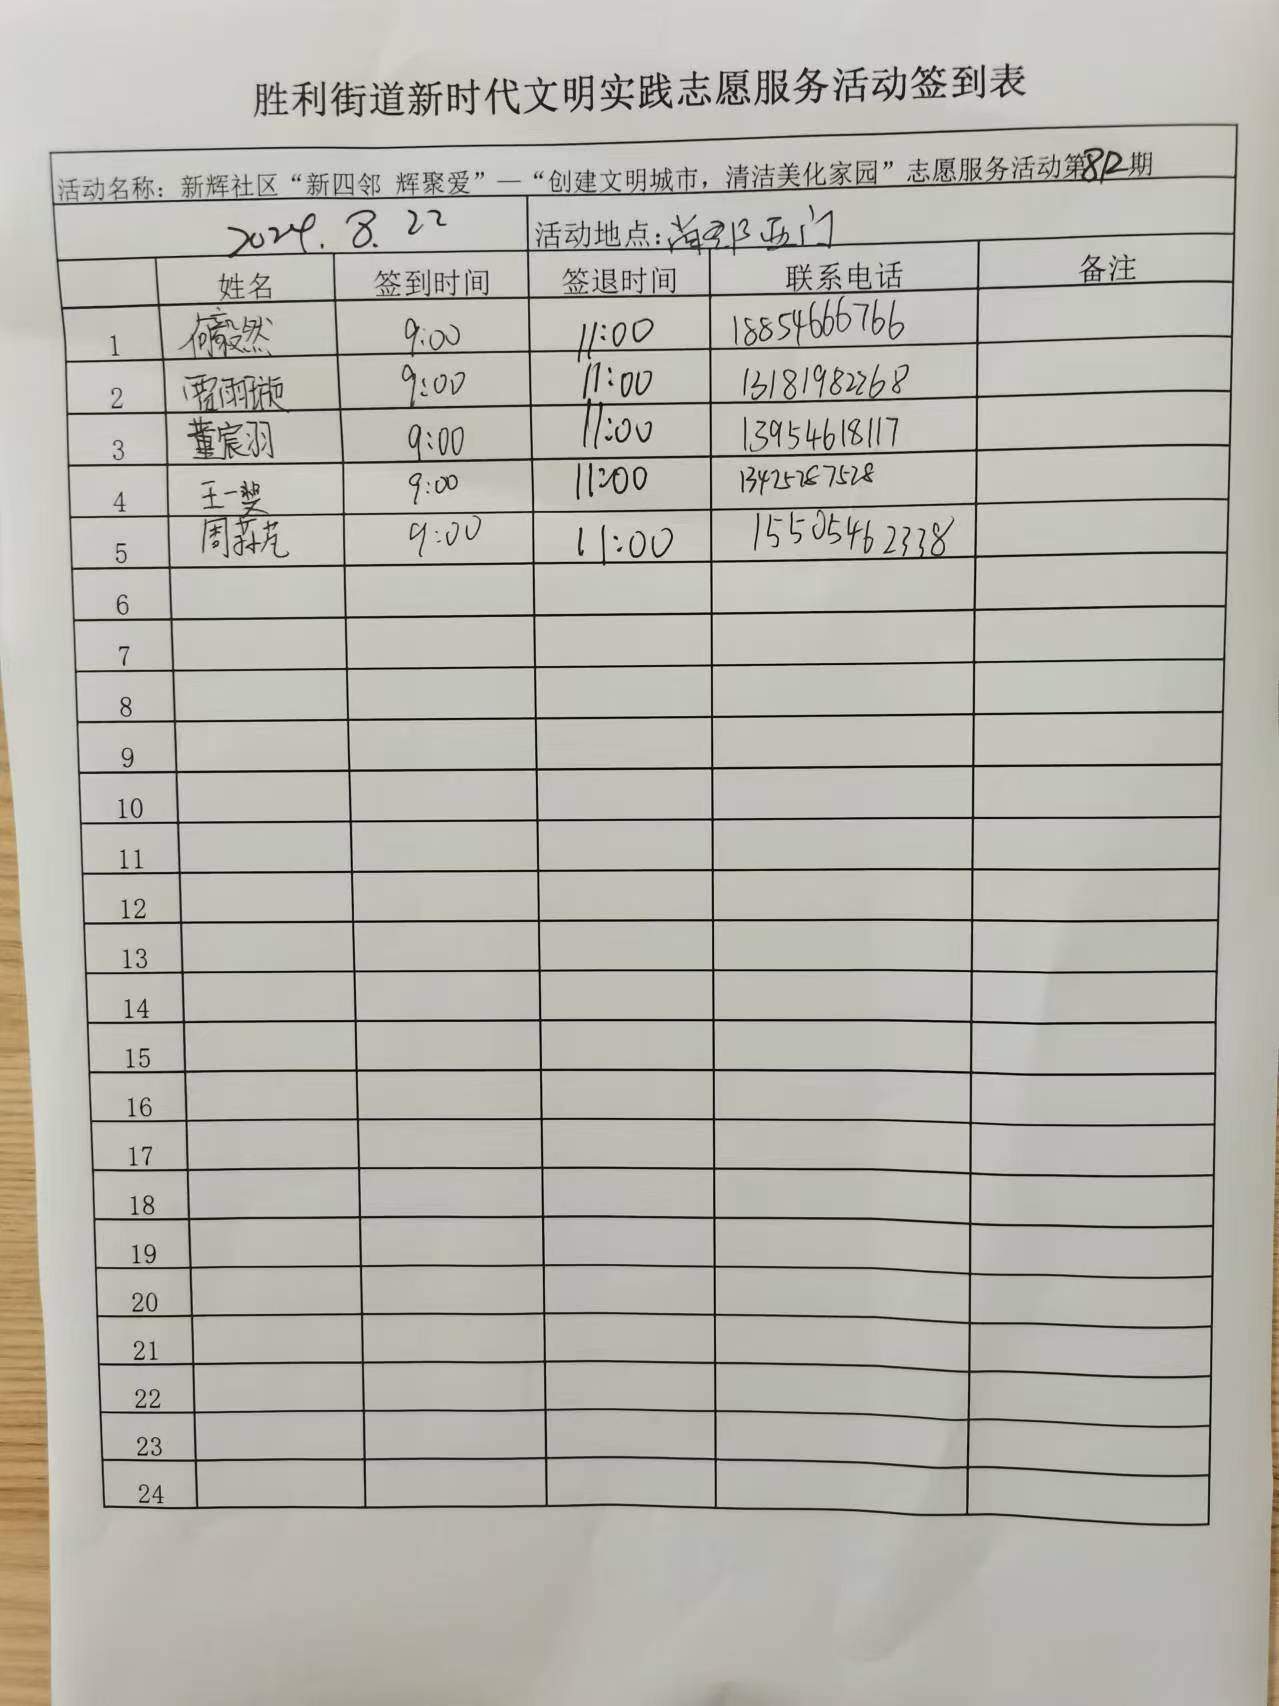 胜利街道新时代文明实践志愿服务活动签到表
活动名称：新辉社区“新四邻 辉聚爱”—“创建文明城市，清洁美化家园”志愿服务活动第812期
2024.8.22 活动地点：
姓名 签到时间 签退时间 联系电话 备注
1 何毅然 9:00 11:00 18854666766
2 贾雨璇 9:00 11:00 13181982268
3 董宸羽 9:00 11:00 13954618117
4 王一斐 9:00 11:00 13425287528
5 周 9:00 11:00 15505462338
6
7
8
9
10
11
12
13
14
15
16
17
18
19
20
21
22
23
24